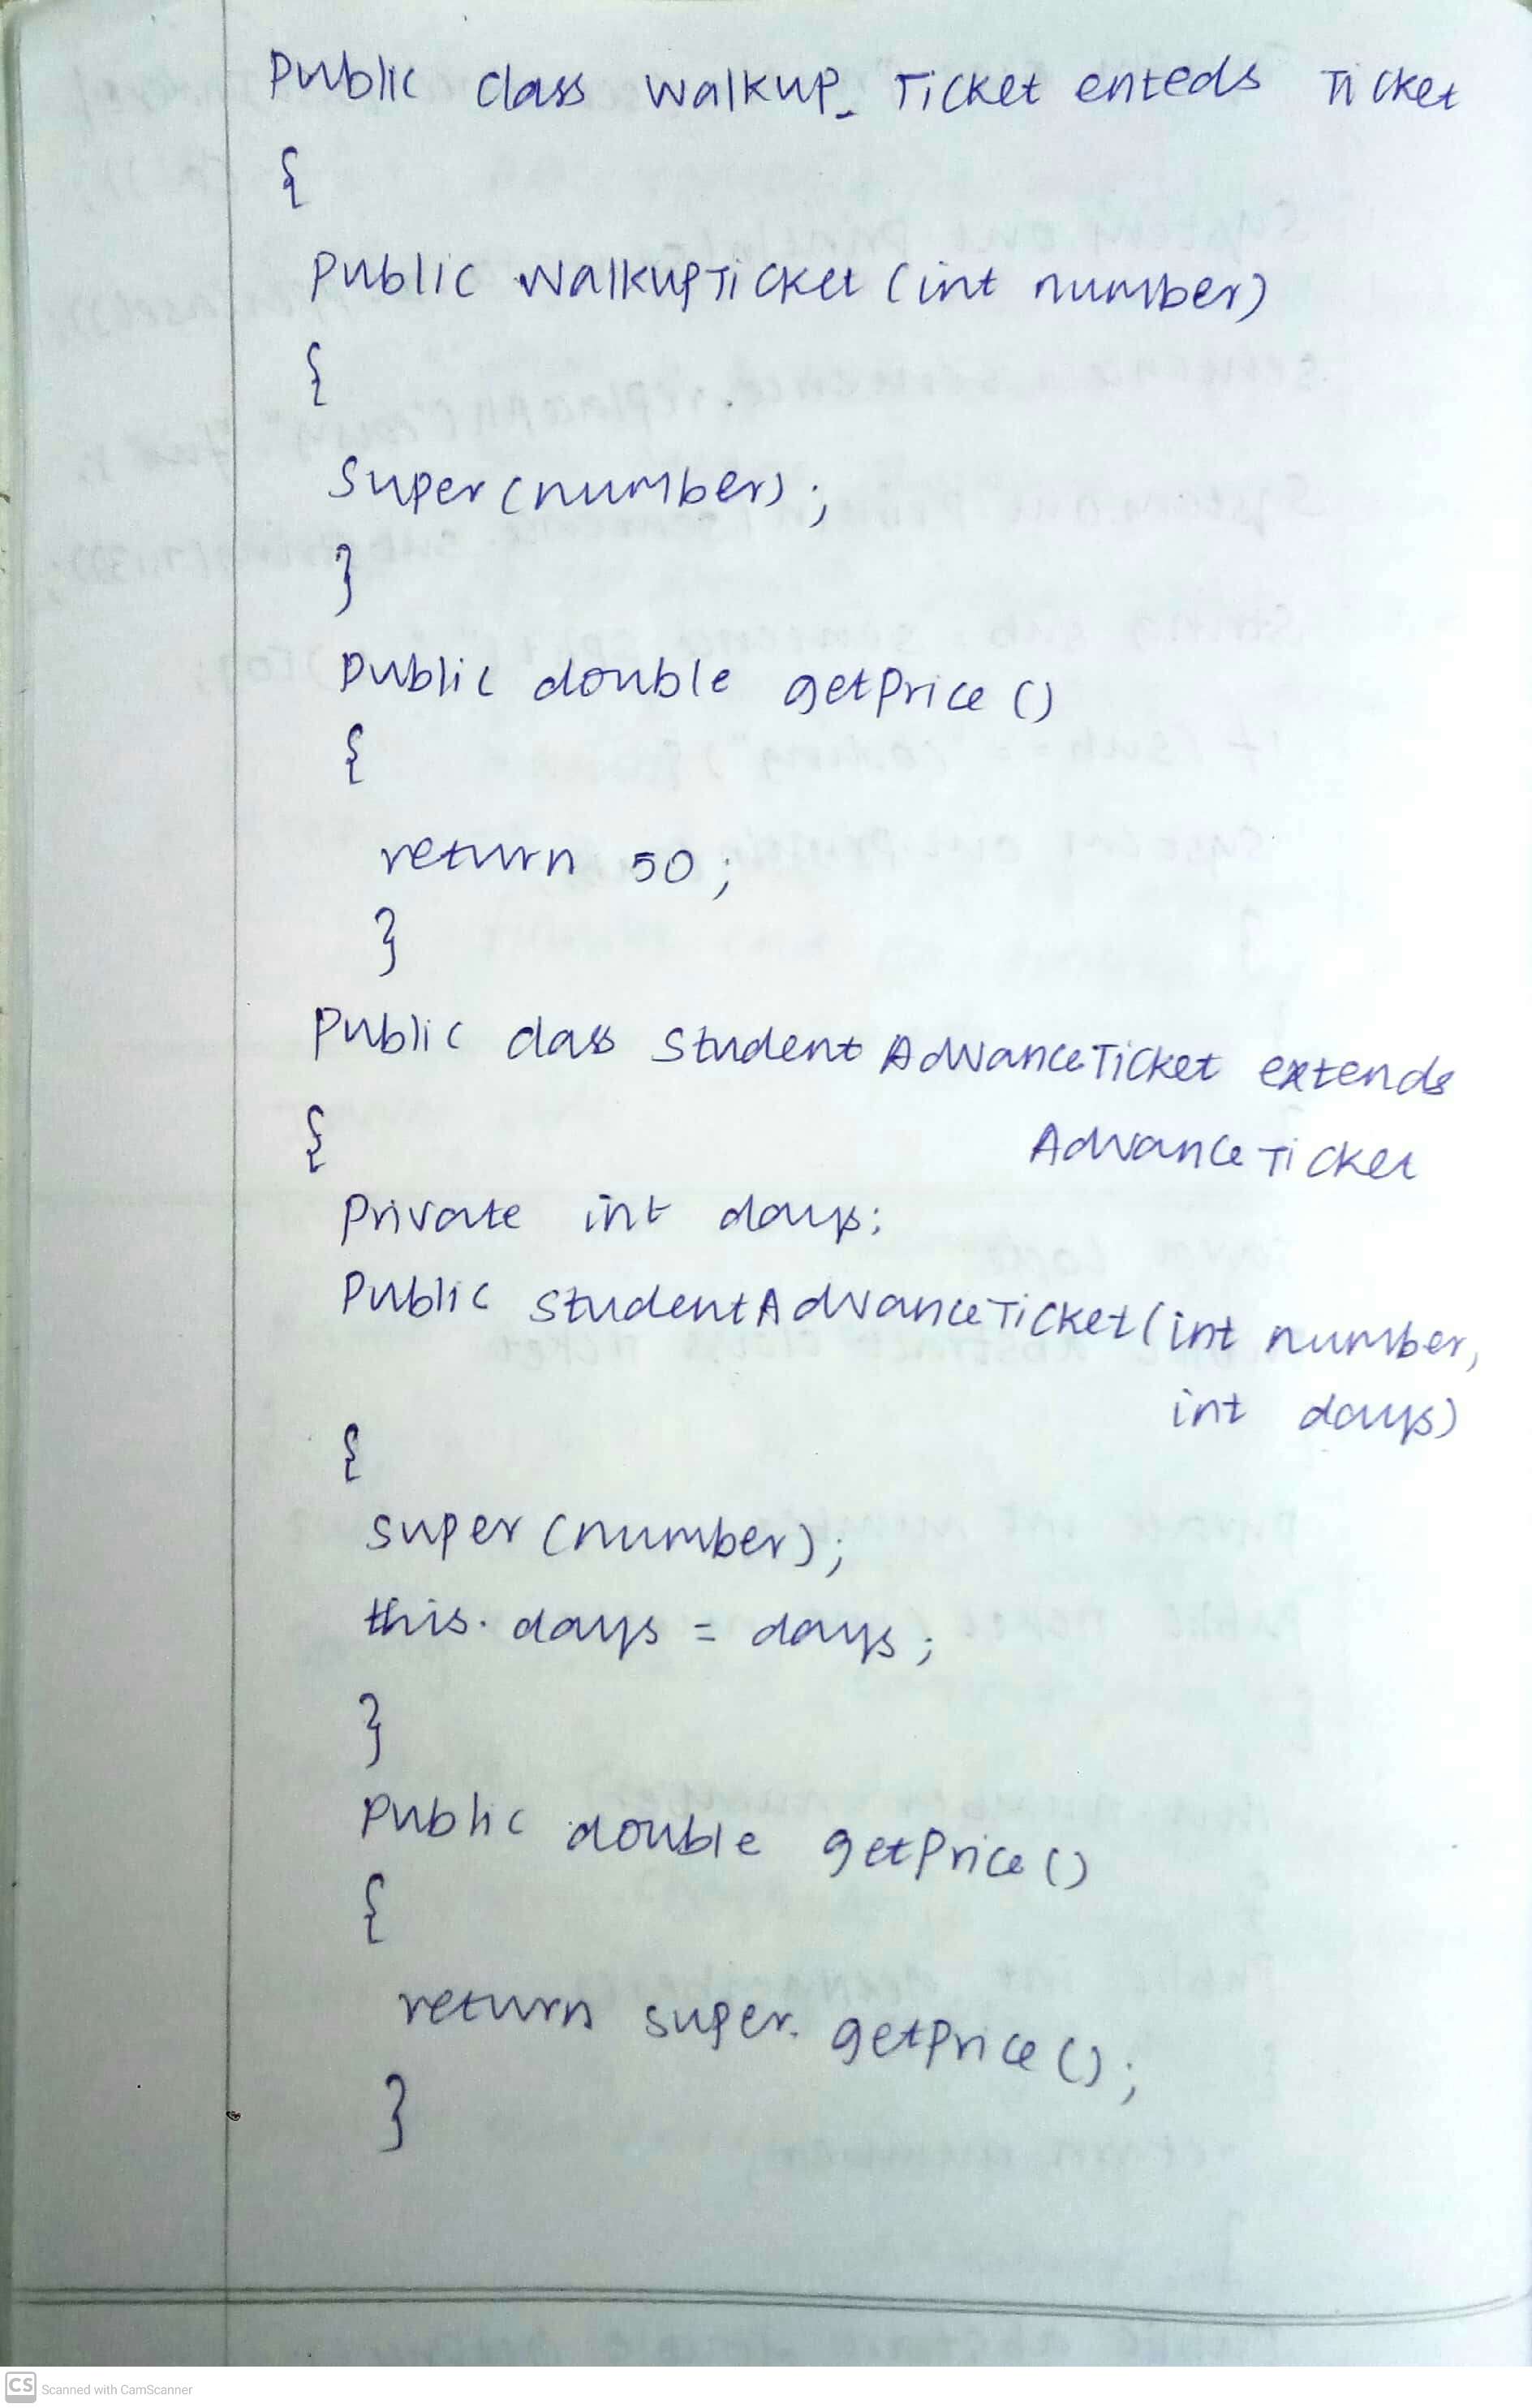 Public class Walkup_Ticket enteds Ticket
{
Public WalkupTicket (int number)
{
Super (number);
}
Public double getPrice ()
{
return 50;
}
Public class Student AdvanceTicket extends
{ AdvanceTicket
Private int days;
Public StudentAdvanceTicket (int number,
int days)
{
super (number);
this. days = days;
}
Public double getPrice ()
{
return super. getPrice ();
}
CS Scanned with CamScanner